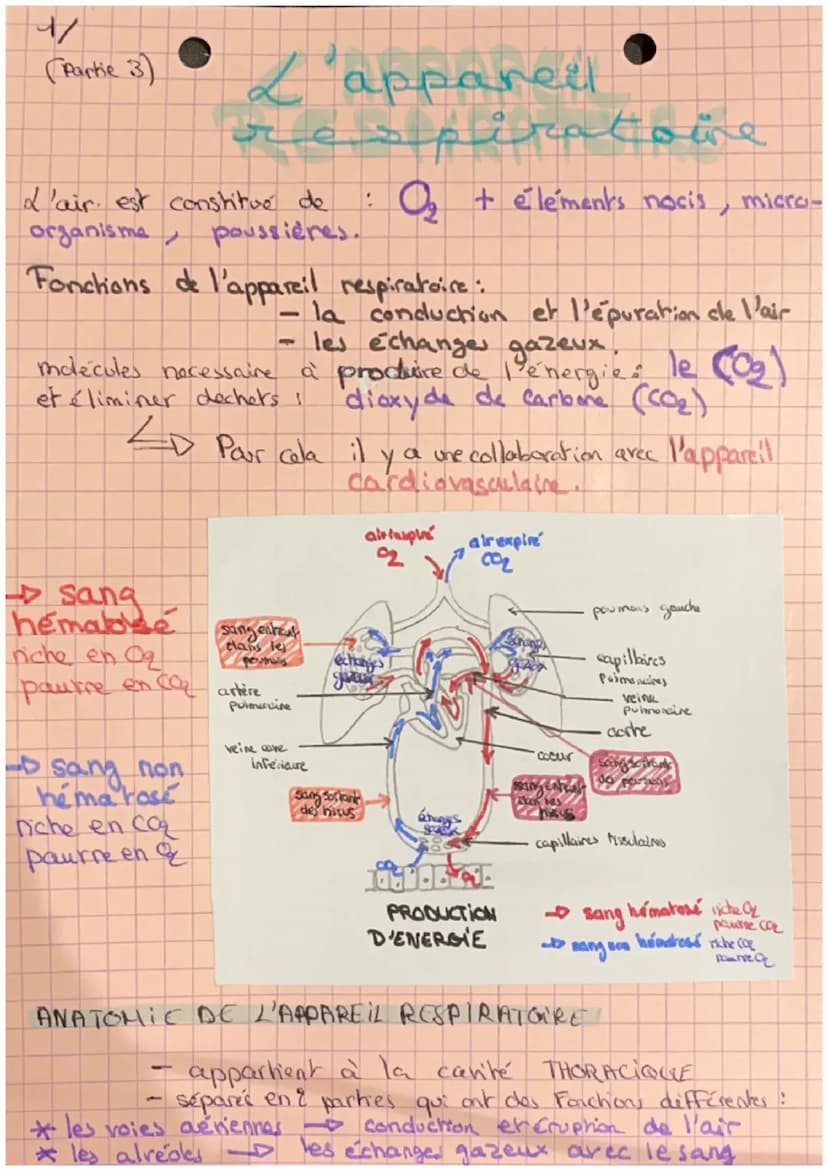 1/
(Partie 3)
L'appareil
respiratoire
L'air est constitué de : O2 + éléments nocis, micro-
organisme, poussières.
Fonctions de l'appareil respiratoire :
- la conduction et l'épuration de l'air
- les échanges gazeux.
molécules necessaire à produire de l'énergie : le (O2)
et éliminer dechets : dioxyde de carbone (CO2)
Pour cela il y a une collaboration avec l'appareil
cardiovasculaire.
→ sang
hématosé
riche en O2
pauvre en CO2
→ sang non
hématosé
riche en CO2
pauvre en O2
air inspiré
O2
air expiré
CO2
poumons gauche
sang entrant
dans les
poumons
échanges
gazeux
échanges
gazeux
capillaires
pulmonaires
artère
pulmonaire
veine
pulmonaire
aorte
veine cave
inférieure
coeur
sang sortant
des poumons
sang sortant
des tissus
sang entrant
dans les
tissus
échanges
gazeux
capillaires tissulaires
CO2
O2
PRODUCTION
D'ENERGIE
→ sang hématosé riche O2
pauvre CO2
→ sang non hématosé riche CO2
pauvre O2
ANATOMIE DE L'APPAREIL RESPIRATOIRE
- appartient à la cavité THORACIQUE
- séparée en 2 parties qui ont des fonctions différentes :
* les voies aériennes → conduction et éruption de l'air
* les alvéoles → les échanges gazeux avec le sang